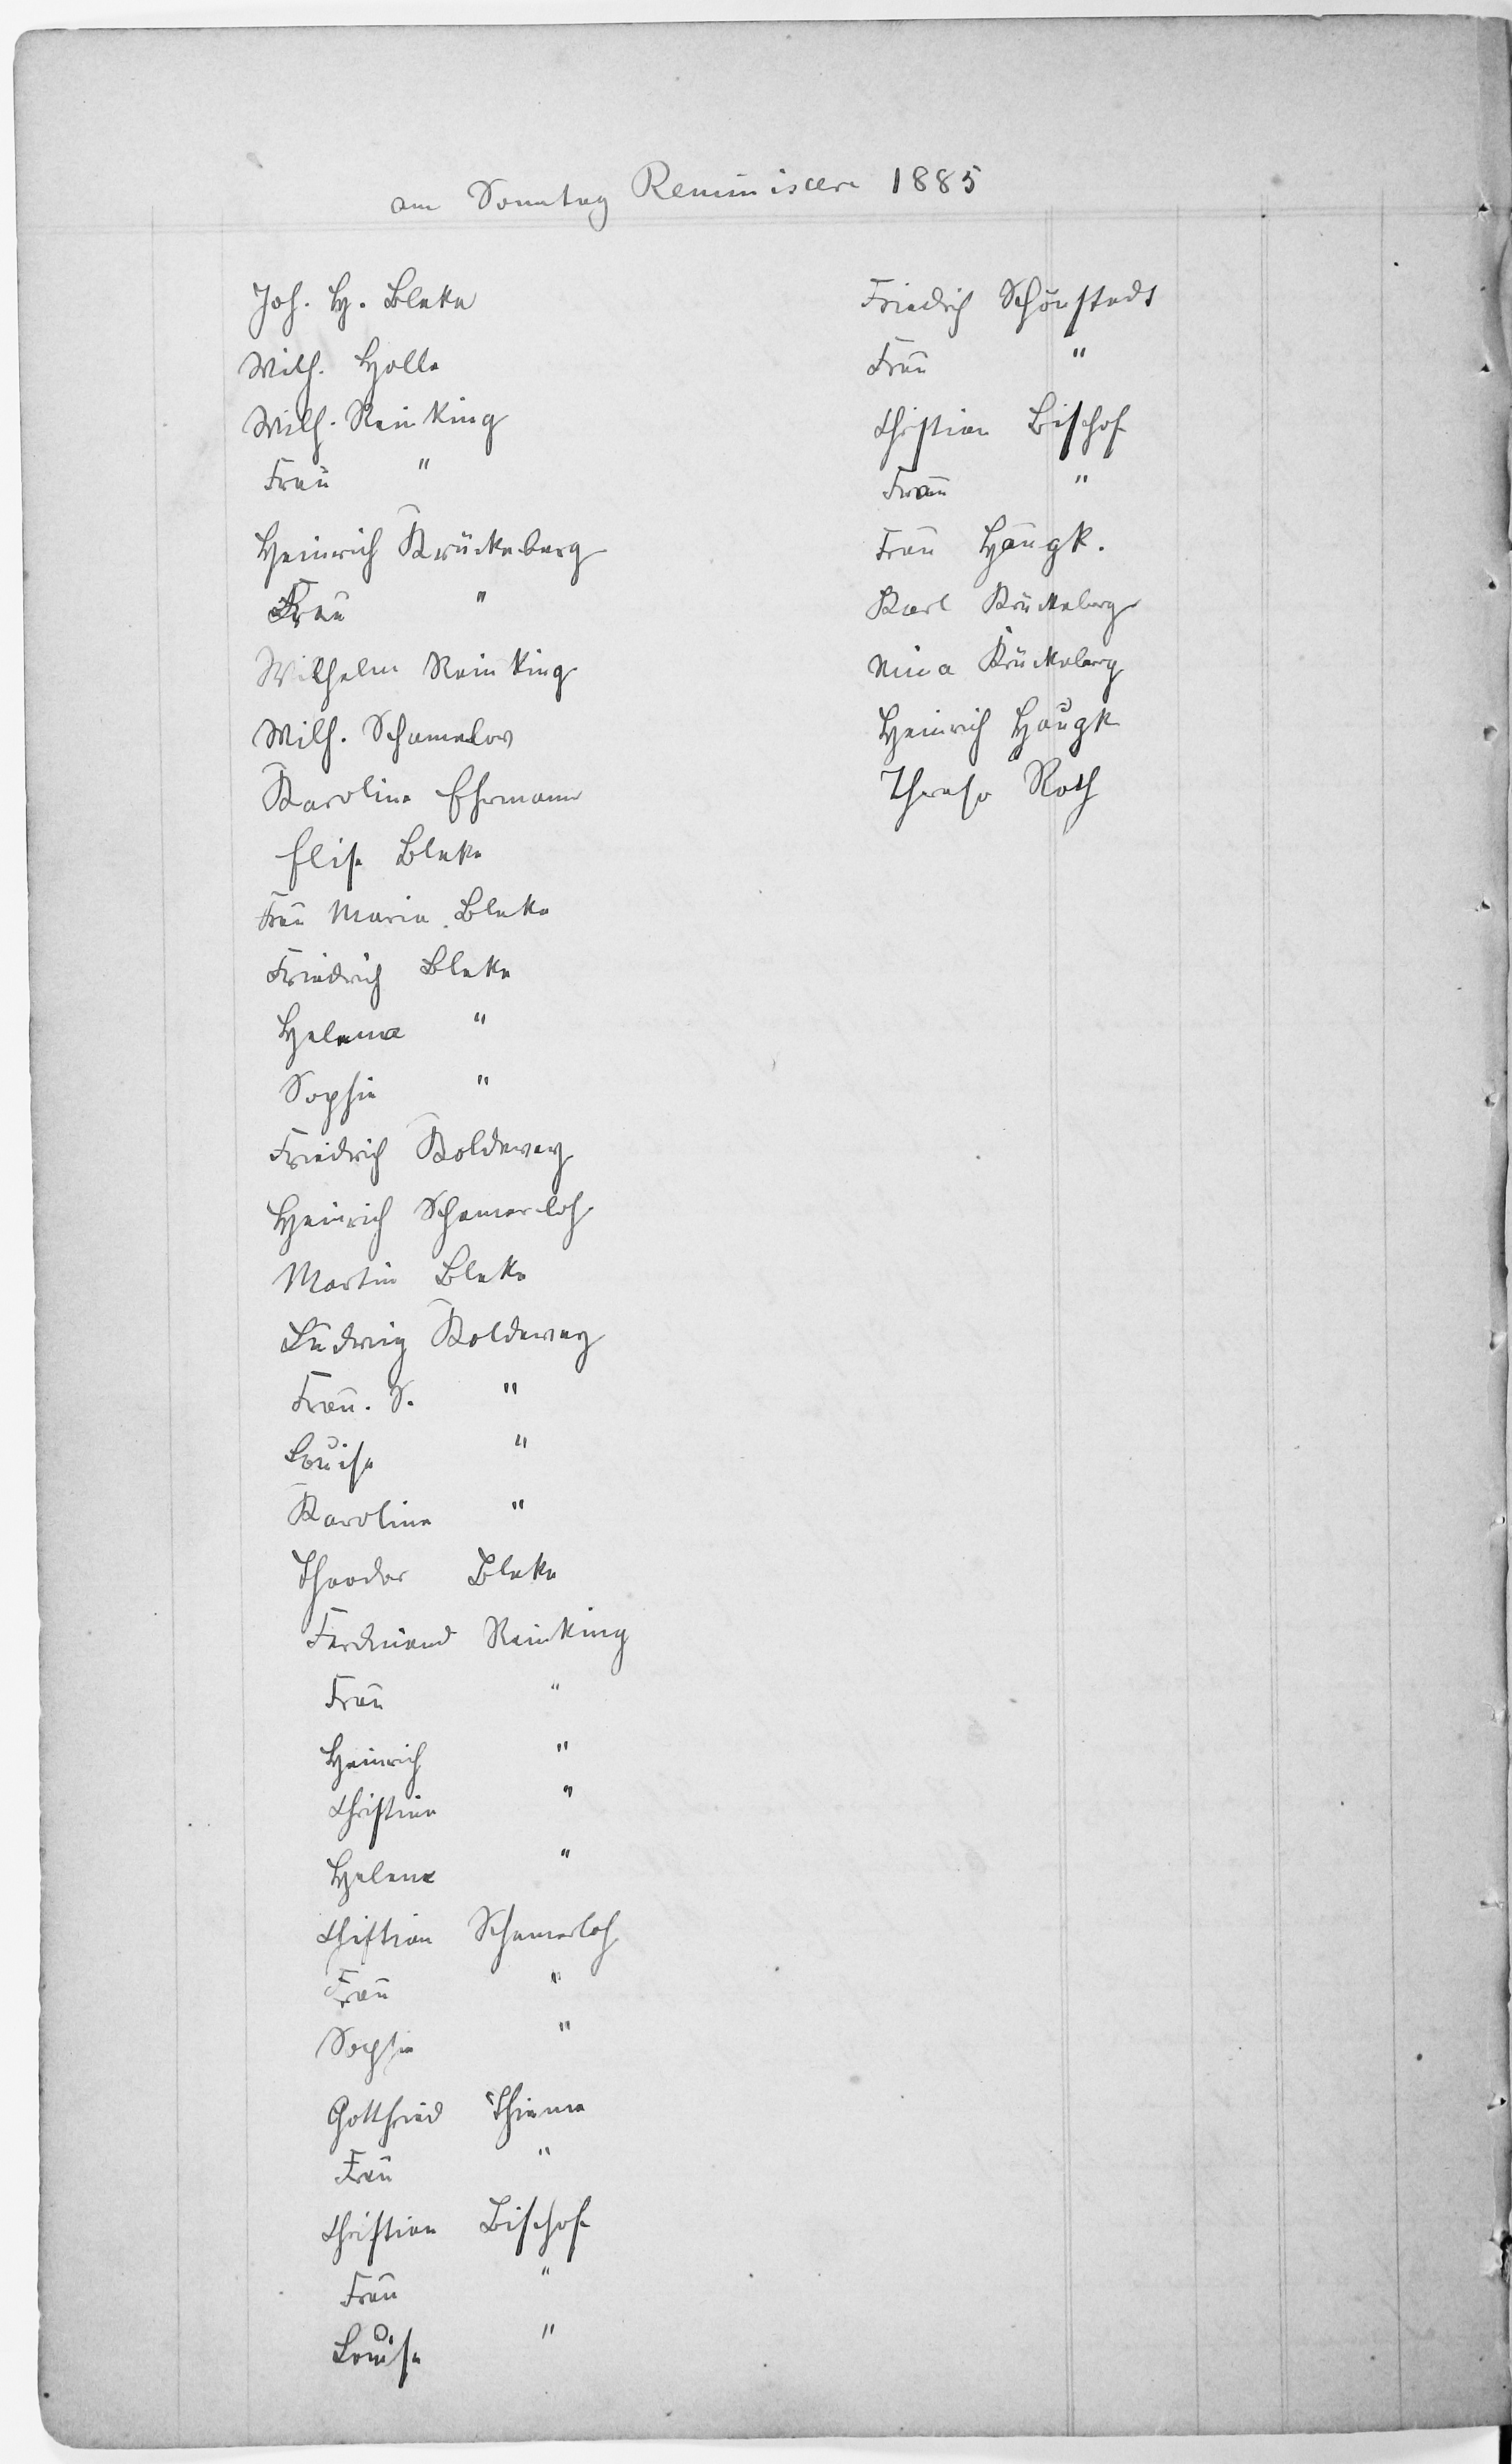 am Sonntag Reminiscere 1885
Joh. H. Bleke
Wilh. Holle
Wilh. Reinking
Frau "
Heinrich Krückeberg
Frau "
Wilhelm Reinking
Wilh. Schamelov
Karoline Ehrmann
Elise Bleke
Frau Maria Bleke
Friedrich Bleke
Helena "
Sophie "
Friedrich Koldewey
Heinrich Schamerloh
Martin Bleke
Ludwig Koldewey
Frau. S. "
Louise "
Karoline "
Theodor Bleke
Ferdinand Reinking
Frau "
Heinrich "
Christine "
Helene "
Christian Schamerloh
Frau "
Sophie "
Gottfried Thieme
Frau "
Christian Bischof
Frau "
Louise "
Friedrich Schönstedt
Frau "
Christian Bischof
Frau "
Frau Haugk.
Karl Krückeberg
Mina Krückeberg
Heinrich Haugk
Therese Roth